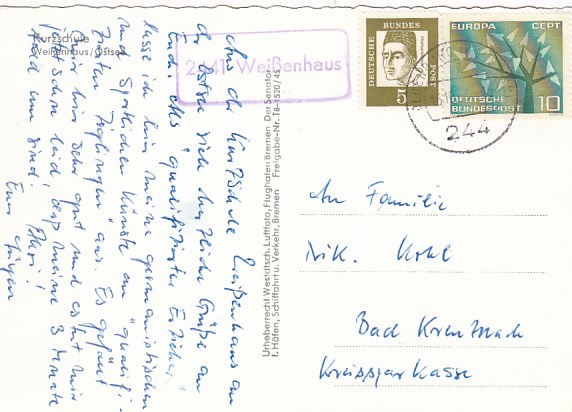 Kurzschule
Weißenhaus/Ostsee
2441 Weißenhaus
DEUTSCHE BUNDES POST
5
EUROPA CEPT
DEUTSCHE
BUNDESPOST 10
244
Aus der Kurzschule Weißenhaus an
der Ostsee viele herzliche Grüße am
Ende. Als "qualifizierter Erzieher"
lasse ich hier meine germanistischen
und sportlichen Künste an "qualifi-
zierten Zöglingen" aus. Es gefällt
mir hier sehr gut und es tut mir
jetzt schon leid, daß meine 3 Monate
bald um sind!
Euer Jürgen
Urheberrecht Westdtsch. Luftfoto, Flughafen Bremen Der Senator
f. Häfen, Schiffahrt u. Verkehr, Bremen Freigabe-Nr. TB-1520/45
An Familie
Nik. Kohl
Bad Kreuznach
Kreissparkasse